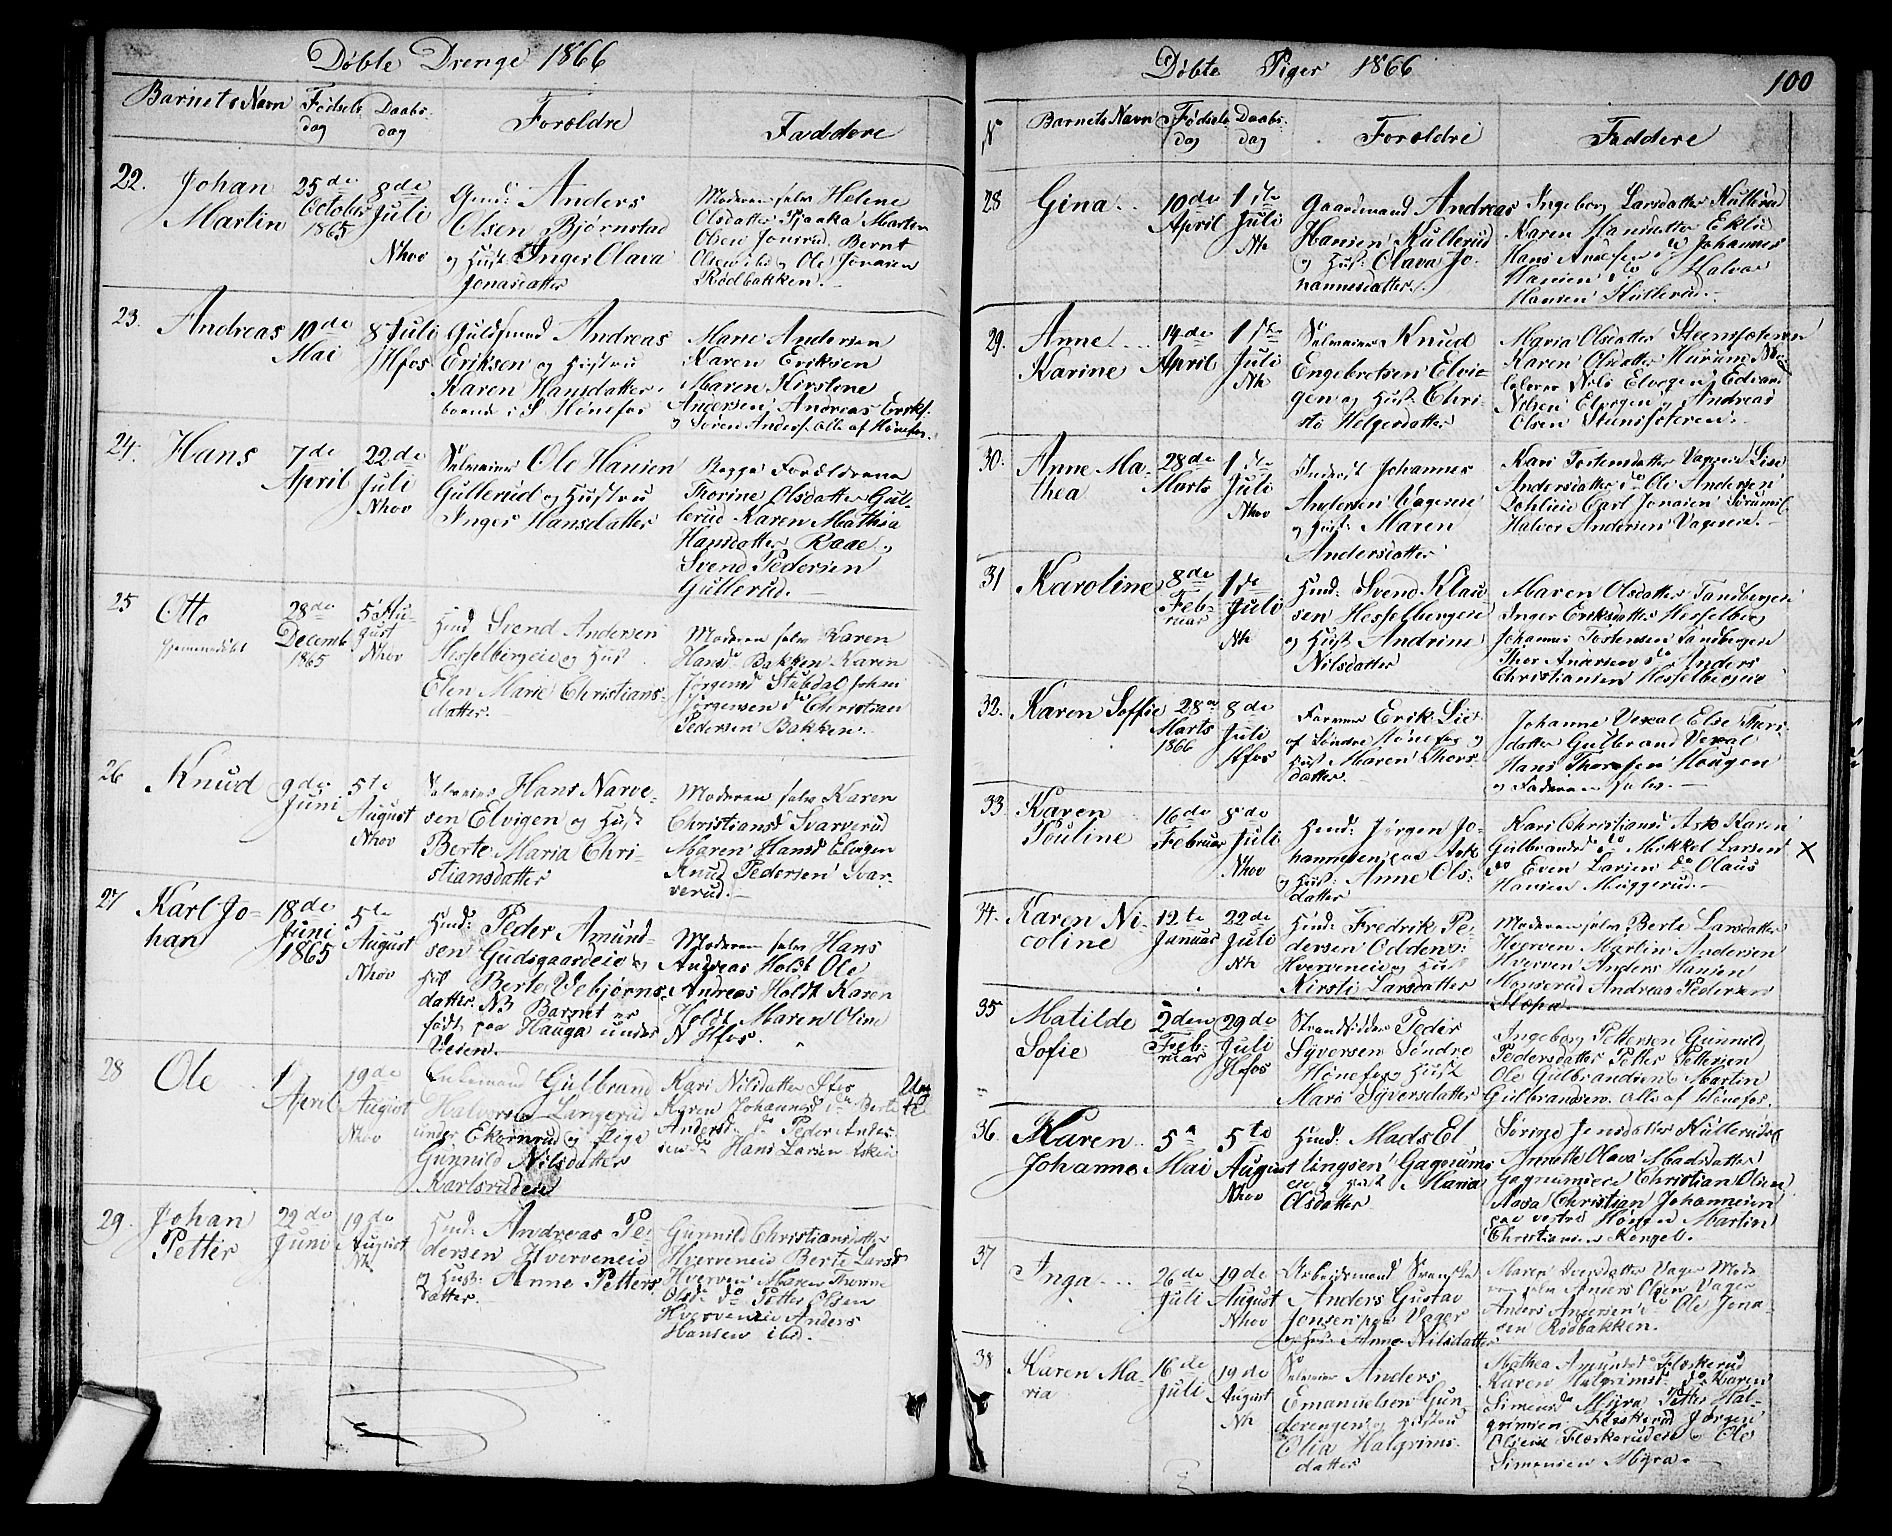 Døbte Drenge 1866
Barnets Navn Fødsels dag Daabs dag Forældre Faddere
22. Johan Martin
25de October 1865
8de Juli Nhov
Anders
Olsen Bjørnstad
og Hust: Inger Olava
Jonasdatter
Moderen selv Helene
Olsdatter Tjaaka Marten
Olsen Bernt
Olsen ibid og Ole Jonasen
Rødbakken.
23. Andreas
10de Mai
8 Juli Hfos
Guldsmed Andreas
Eriksen og Hustru
Karen Hansdatter
boende i S. Hønefos
Marie Andersen
Karen Eriksen
Maren Kirstene
Andersen Andreas Eriks:
og Søren Anders: alle af Hønefos.
24. Hans
7de April
22de Juli Nhov
Selveier Ole Hansen
Gullerud og Hustru
Inger Hansdatter
Begge Forældrene
Thorine Olsdatter Gul-
lerud Karen Mathia
Hansdatter Raae og
Svend Pedersen
Gullerud.
25 Otto
hjemmedøbt
28de Decemb 1865
5 August Nhov
Huusm Svend Andersen
Hesselbergeie og Hust
Elen Marie Christians-
datter.
Moderen selv Karen
Hansd Bakken Karen
Jørgensd Stubdal Johan
Jørgensen do Christian
Pedersen Bakken.
26 Knud
9de Juni
5te August Nhov
Selveier Hans Narve-
sen Elvigen og Hust
Berte Maria Chri-
stiansdatter
Moderen selv Karen
Christiansd Svarverud
Maren Hansd Elvigen
Knud Pedersen Svar-
verud.
27 Karl Johan
18de Juni 1865
5te August Nhov
Huusm: Peder Amund-
sen Gudsgaardeie og
Hust Berte Vebjørns-
datter. NB Barnet er
født paa Hauga under
Veien.
Moderen selv Hans
Andreas Holdt Ole
Andreas Holdt Karen
Holdt Maren Oline
N Hfos.
28 Ole
1 April
19de August Nhov
Enkemand Gulbrand
Halvorsen Langerud
under Ekornrud og Pige
Gunnild Nilsdatter
Karlsrudeie
Kari Nilsdatter
Karen Johannesd do Berte
Andersd do Peder Anders-
sen do Hans Larsen Asken
29. Johan Petter
22de Juni
19de August Nh
Huusm: Andreas Pe-
dersen Hverveneie
og Hust: Anne Petters-
datter.
Gunnild Christiansdatter
Hverveneie Berte Larsd
Hverven Maren Thorine
Olsd do Petter Olsen
Hverveneie Anders
Hansen ibd.

Døbte Piger 1866 100
N Barnets Navn Fødsels dag Daabs dag Forældre Faddere
28 Gina
10de April
1ste Juli Nh
Gaardmand Andreas
Hansen Kullerud
og Hust: Olava Jo-
hannesdatter.
Ingeborg Larsdatter Kullerud
Karen Hansdatter Eklie
Hans do Johannes
Hansen do Halvor
Hansen Kullerud.
29. Anne Karine
14de April
1ste Juli Nh
Selveier Knud
Engebretsen Elvi-
gen og Hust Chri-
sti Helgesdatter
Maria Olsdatter
Karen Olsdatter
Nils Elvegen Edvard
Nilsen Elvegen og Andreas
Olsen
30. Anne Mathea
28de Marts
1ste Juli Nhov
Inderst Johannes
Andersen Vagereie
og Hust: Maren
Andersdatter
Kari Torstensdatter Lise
Andersdatter do Ole Andersen
Carl Jonasen
Halvor Andersen
31 Karoline
8de Februar
1ste Juli Nh
Huusm: Svend Klau-
sen Hesselbergeie
og Hust Andrine
Nilsdatter
Maren Olsdatter Tandbergeie
Inger Eriksdatter Hesselberg
Johannes Torstensen Tandbergeie
Thor Andersen do Anders
Christiansen Hesselbergeie
32. Karen Soffie
28de Marts 1866
8de Juli Hfos
Farver Erik Lie
af Søndre Hønefos og
Hust Maren Thors-
datter
Johanne Vexal Else Thori-
datter Gulbrand Vexal
Hans Thoresen Haugen
og Faderen selv.
33 Karen Pouline
16de Februar
8de Juli Nhov
Huusm: Jørgen Jo-
hannesen paa Ask
og Hust: Anne Ols-
datter
Kari Christiansd Ask Karen
Gulbrandsd do Mikkel Larsen
do Even Larsen do Olaus
Hansen Muggerud.
X
34. Karen Nicoline
12te Januar
22de Juli Nh
Huusm: Fredrik Pe-
dersen Odden
Hverveneie og Hust
Kirsti Larsdatter
Moderen selv Berte Larsdatter
Hverven Martin Andersen
Hverven Anders Hansen
Monserud Andreas Pedersen
35 Matilde Sofie
2den Februar
29de Juli Hfos
Strandsidder Peder
Syversen Søndre
Hønefos og Hust
Mari Syversdatter
Ingeborg Pettersen Gunnild
Pedersdatter Petter Pettersen
Ole Gulbrandsen Martin
Gulbrandsen. alle af Hønefos.
36. Karen Johanne
5 Mai
5te August Nhov
Huusm: Mads El-
lingsen Gagnums-
eie og Hust Maria
Olsdatter
Sørine Jensdatter
Annette Olava Madsdatter
Christian Olsen
Aasa Christian Johannesen
paa vestre Hønen Martin
Christiansen Kongel.
37 Inga
26de Juli
19de August Nhov
Arbeidsmand Svenske
Anders Gustav
Jonsen paa Vager
og Hust Anne Nilsdatter
Maren Vager Mode-
ren selv Anders Olsen Vager
Anders Andersen do Ole Jona-
sen Rødbakken.
38 Karen Maria
16de Juli
19de August Nh
Selveier Anders
Emanuelsen Gun-
derengen og Hustru
Olia Halgrims-
datter
Mathea Amundsd Flaskerud
Karen Halgrimsd do Karen
Simensd Myra Petter Hal-
grimsen Flaskerud Jørgen
Olsen Flaskerud og Ole
Simensen Myra.